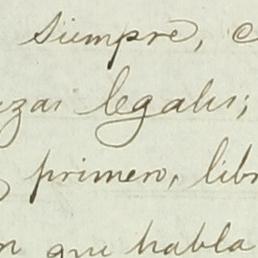 siempre, c
zas legales;
primero, libr
n que habla